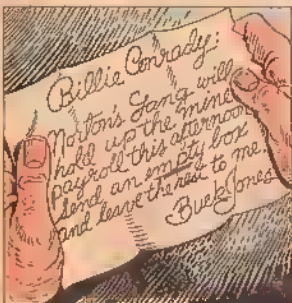 Billie Conrady:
Norton's Gang will
hold up the mine
payroll this afternoon
send an empty box
and leave the rest to me.
Buck Jones